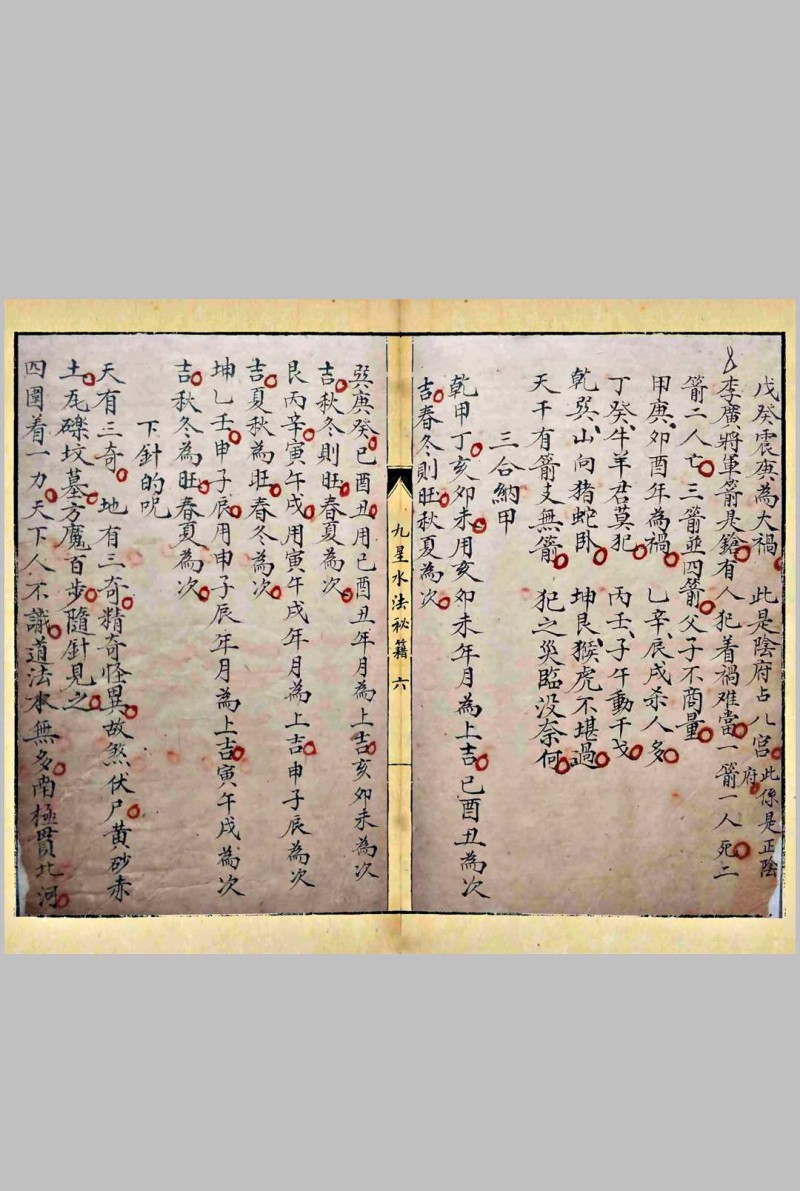 戊癸震庚為大禍 此是陰府占八宮 此係是正陰府
李廣將軍箭是鎗有人犯着禍难當一箭一人死二
箭二人亡三箭並四箭父子不商量
甲庚卯酉年為禍 乙辛辰戌杀人多
丁癸牛羊君莫犯 丙壬子午動干戈
乾巽山向猪蛇卧 坤艮猴虎不堪過
天干有箭支無箭 犯之災臨没奈何
三合納甲
乾甲丁亥卯未用亥卯未年月為上吉巳酉丑為次
吉春冬則旺秋夏為次
九星水法祕籍 六
巽庚癸巳酉丑用巳酉丑年月為上吉亥卯未為次
吉秋冬則旺春夏為次
艮丙辛寅午戌用寅午戌年月為上吉申子辰為次
吉夏秋為旺春冬為次
坤乙壬申子辰用申子辰年月為上吉寅午戌為次
吉秋冬為旺春夏為次
下針的呪
天有三奇 地有三奇精奇怪異故煞伏尸黄砂赤
土瓦礫坟墓方魔百步隨針見之
四圍着一力天下人不識道法本無多南極貫北河